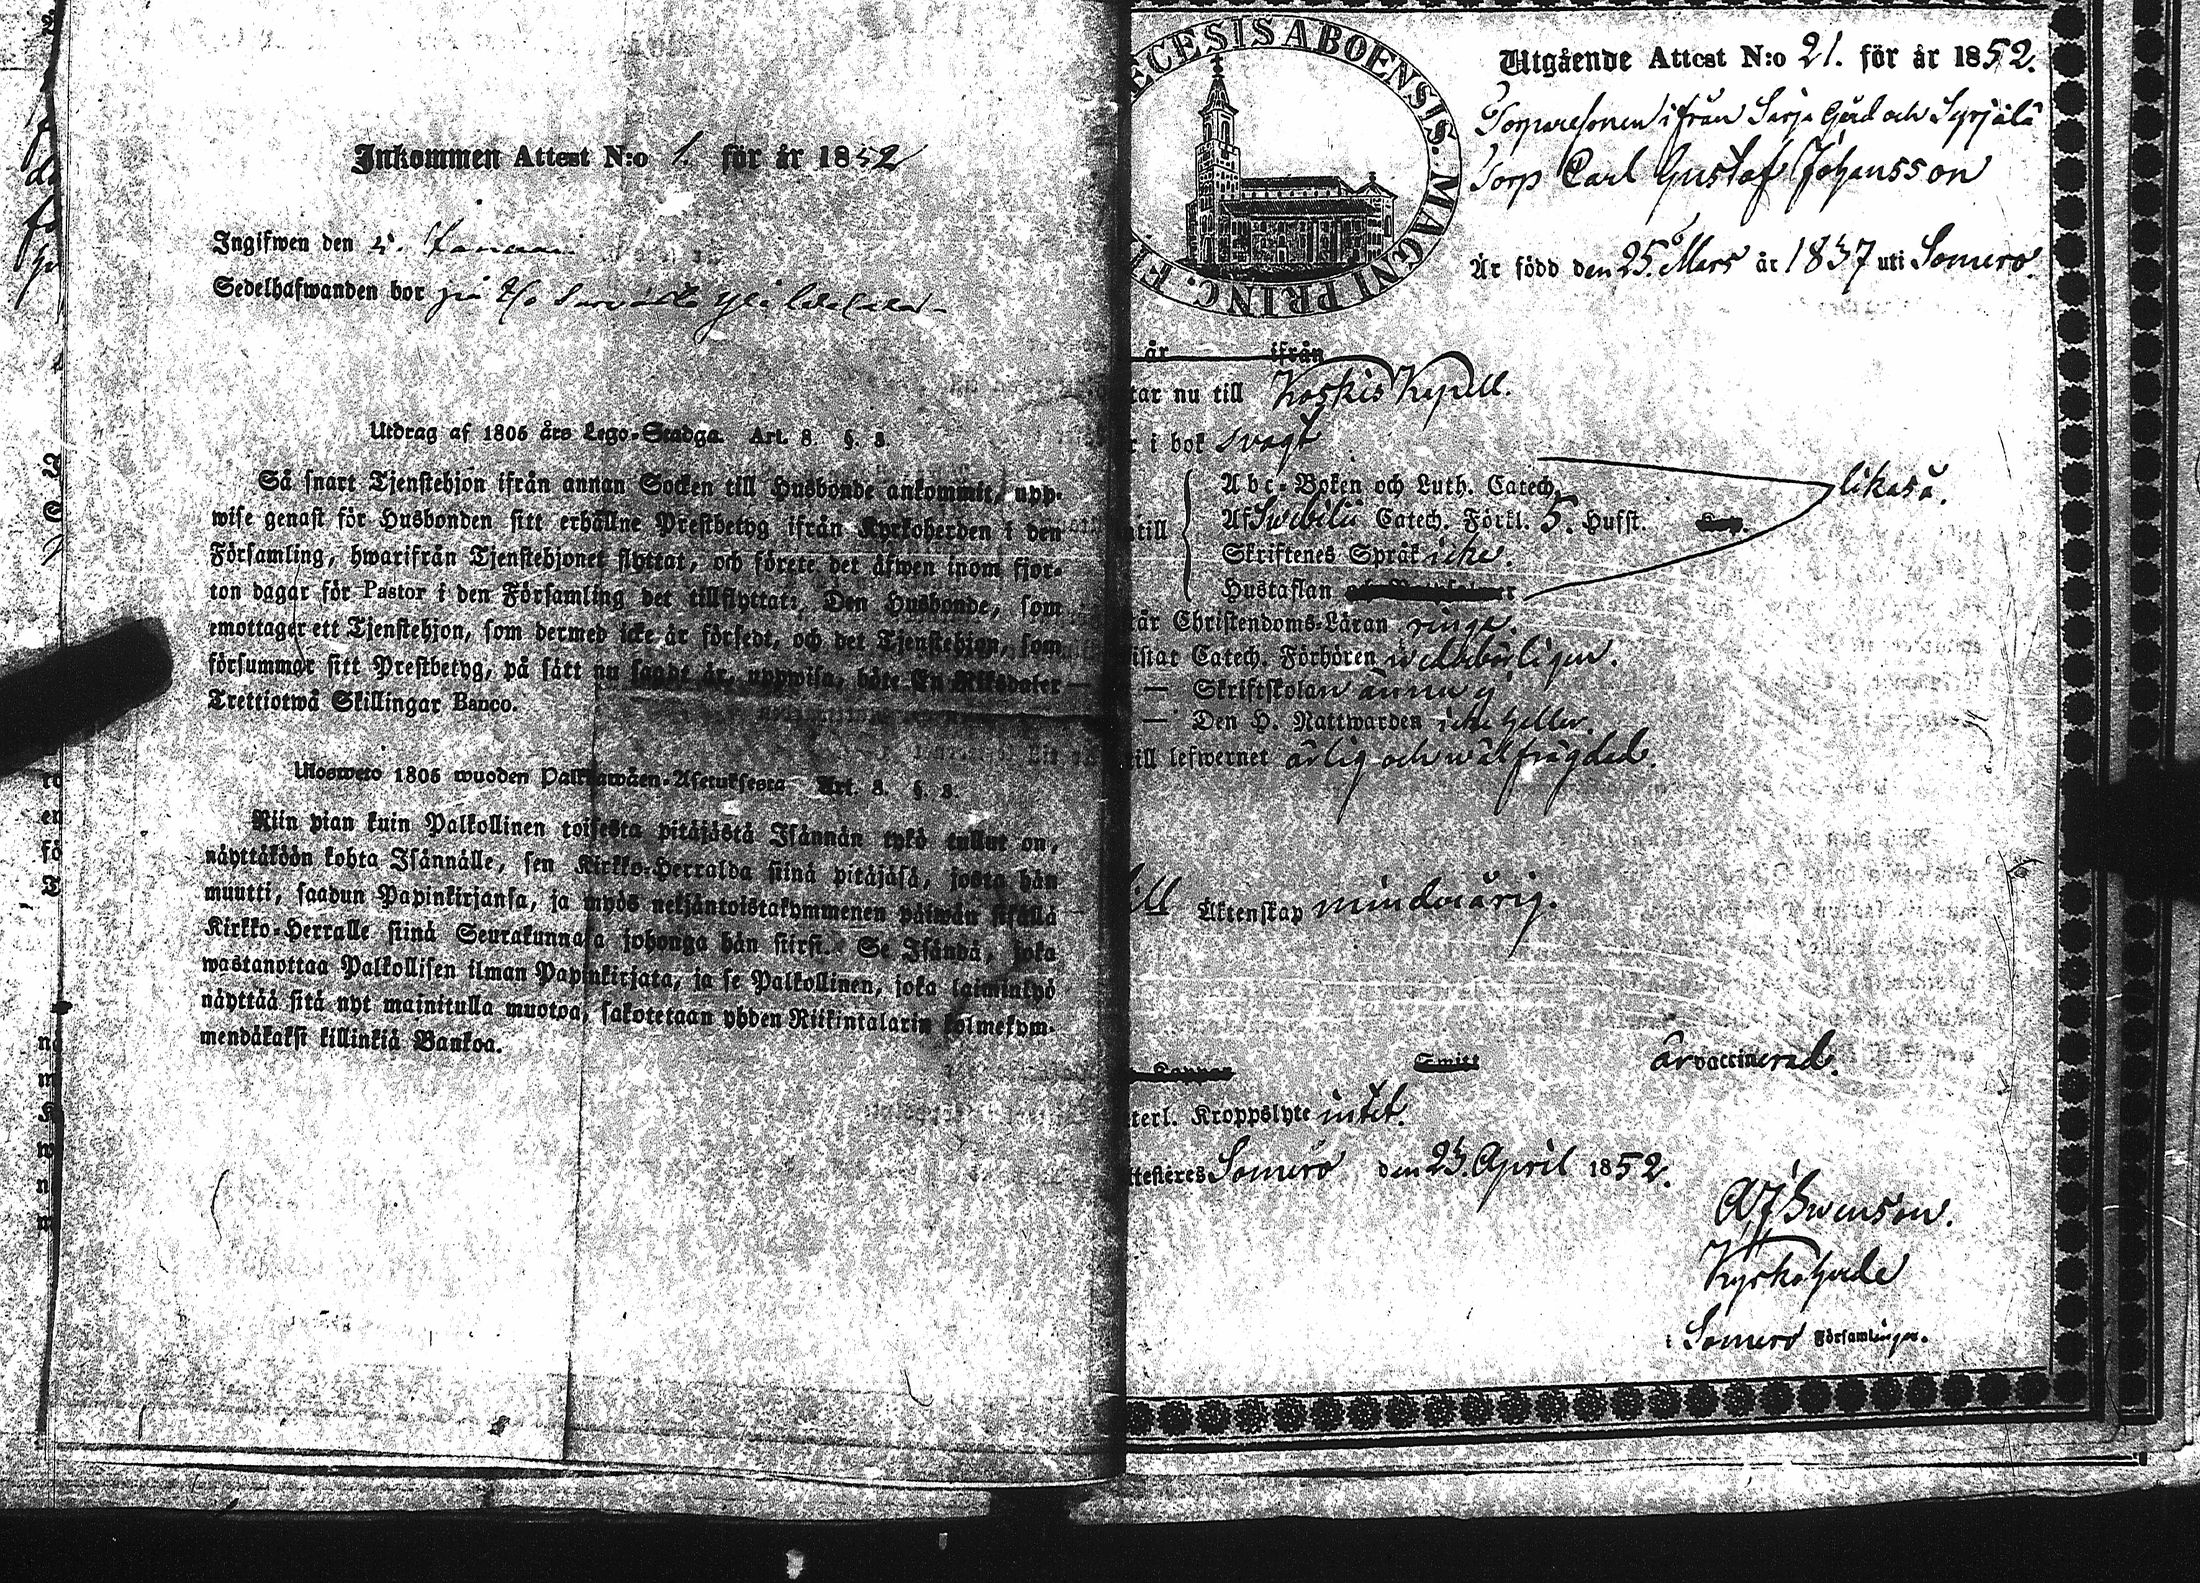 Inkommen Attest N:o 1. för år 1852
Ingifwen den 5. Januari
Sedelhafwanden bor på
Utdrag af 1805 års Lego-Stadga. Art. 8. §. 8.
Så snart Tjenstehjon ifrån annan Socken till Husbonde ankommit, upp-
wise genast för Husbonden sitt erhållne Prestbetyg ifrån Kyrkoherden i den
Församling, hwarifrån Tjenstehjonet flyttat, och förete det äfwen inom fjor-
ton dagar för Pastor i den Församling det tillflyttat. Den Husbonde, som
emottager ett Tjenstehjon, som dermed icke är försedt, och det Tjenstehjon, som
försummar sitt Prestbetyg, på sätt nu sagdt är, uppwisa, böte En Riksdaler
Trettiotwå Skillingar Banco.
Ulosweto 1805 wuoden Palkkawäen-Asetuksesta Art. 8. §. 8.
Niin pian kuin Palkollinen toisesta pitäjästä Isännän tykö tullut on,
näyttäköön kohta Isännälle, sen Kirkko-Herralda siinä pitäjäsä, josta hän
muutti, saadun Papinkirjansa, ja myös neljäntoistakymmenen päiwän sisällä
Kirkko-Herralle siinä Seurakunnasa johonga hän siirsi. Se Isändä, joka
wastanottaa Palkollisen ilman Papinkirjata, ja se Palkollinen, joka laiminlyö
näyttää sitä nyt mainitulla muotoa, sakotetaan yhden Riikintalarin kolmekym-
mendäkaksi killinkiä Bankoa.
ECESIS ABOENSIS. MAGNI PRINC. F
Utgående Attest N:o 21. för år 1852.
Torparesonen ifrån Sarja Gård och Syrjälä
Torp Carl Gustaf Johansson
Är född den 25. Mars år 1837 uti Somero.
år ifrån
tar nu till Koskis Kapell.
r i bok svagt
Abc-Boken och Luth. Catech.
likaså.
ntill Af Swebilii Catech. Förkl. 5. Hufst.
Skriftenes Språk icke.
Hustaflan
tår Christendoms-Läran ringa.
istat Catech. Förhören wederbörligen.
— Skriftskolan ännu ej
— Den H. Nattwarden icke heller.
till lefwernet ärlig och wälfrägdad.
till Äktenskap mindreårig.
Koppor är vaccinerad.
terl. Kroppslyte intet.
ttesteres Somero den 23. April 1852.
Swenson.
Kyrkoherde
i Somero Församlingar.